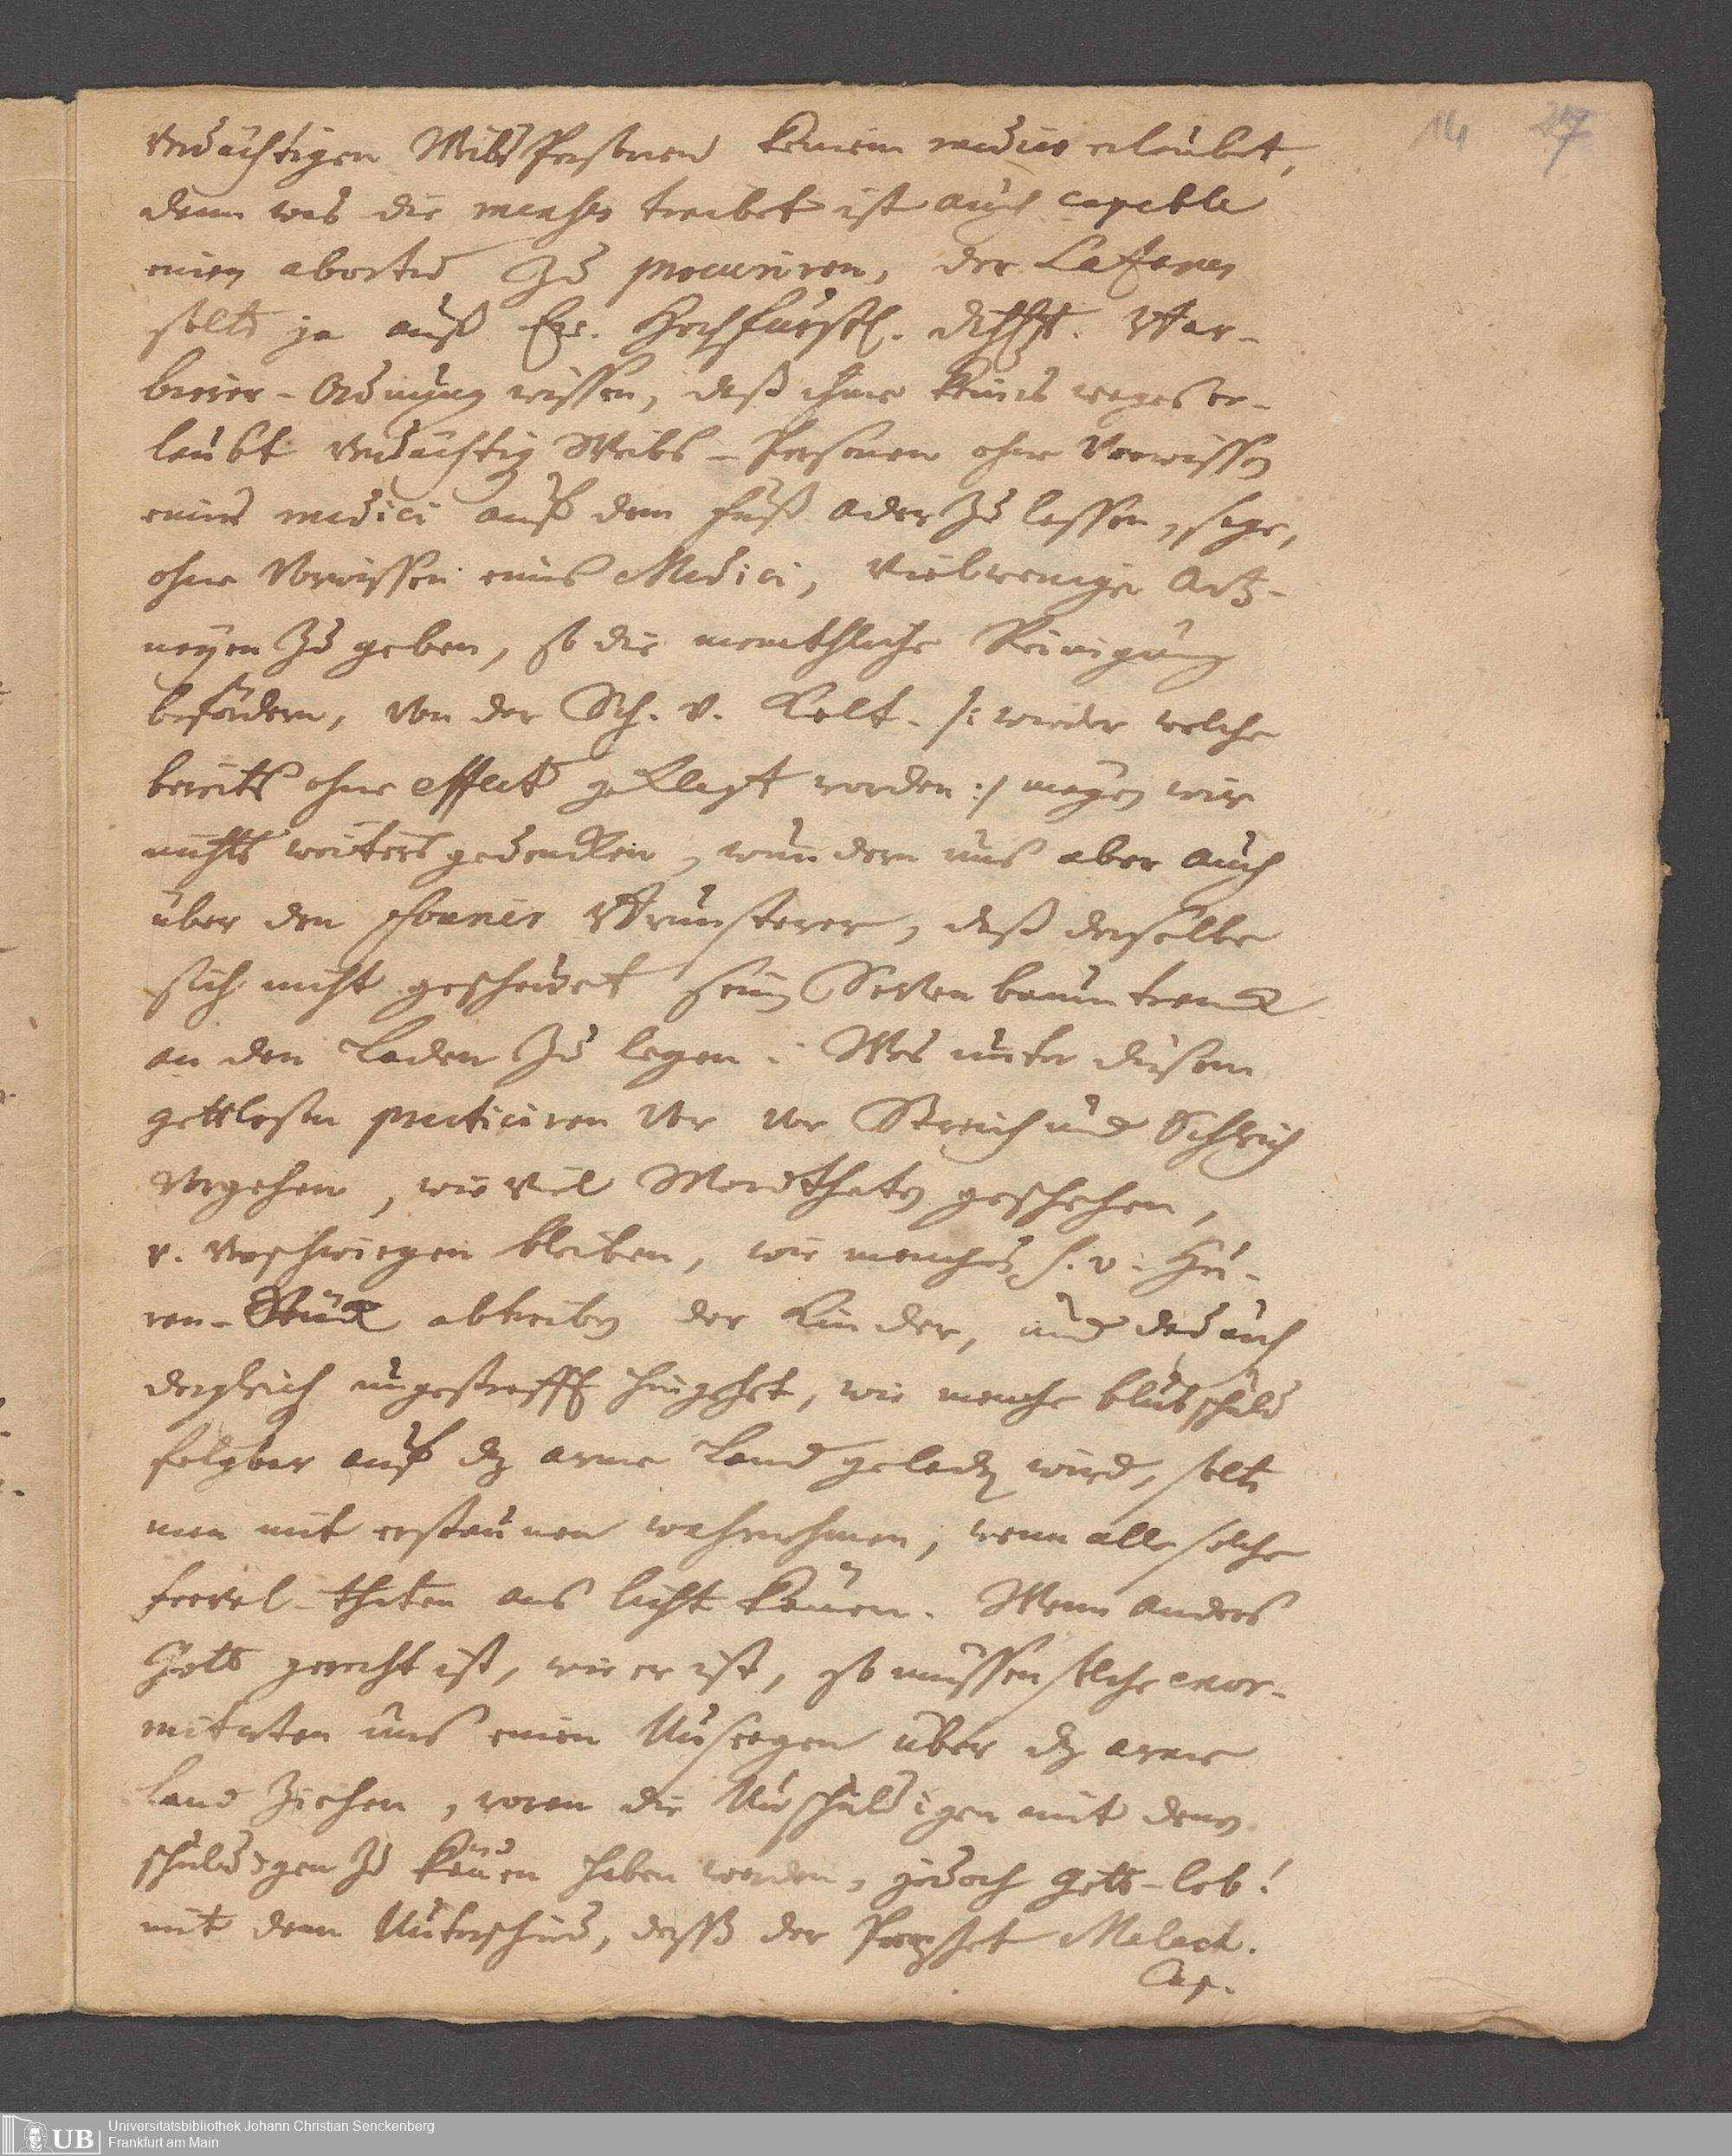 14 27
verdächtigen WeibsPersonen keinem medico erlaubet,
dann was die menses treibet ist auch capable
einen abortũ zu procuriren, der
solte ja auß Ew. Hochfürstl. Dhlt. Bar-
bierer-Ordnung wissen, daß ihme keines weges er-
laubt verdächtig Weibs-Personen ohne Vorwissen
eines medici auf dem fuß ader zu lassen, sage,
ohne Vorwissen eines Medici, vielweniger Artz-
neyen zu geben, so die monathliche Reinigung
befördern, von der Sch. v. /: wieder welche
bereits ohne effect geklagt worden :/ mögen wir
nichts weiters gedencken, wundern uns aber auch
über den daß derselbe
sich nicht gescheuet sein Sevenbaumtranck
an den Laden zu legen. Was unter diesem
gottlosen practiciren vor Streich und Schlich
vorgehen, wie viel Mordthaten geschehen,
v. verschwiegen bleiben, wie manches s. v. Hu-
ren-Stück abtreiben der Kinder, und dadurch
dergleich ungestrafft hingehet, wie manche blutschuld
folgbar auf dz arme Land geladen wird, solte
man mit erstaunen wahrnehmen, wenn alle solche
frevel-thaten ans licht kämen. Wenn anders
Gott gerecht ist, wie er ist, so müssen solche enor-
mitæten uns einen Unseegen über dz arme
land ziehen, woran die Unschuldigen mit denen
schuldigen zu käuen haben werden, jedoch Gott-lob!
mit dem Unterschied, dasß der Prophet Malach.
Cap.
UB Universitätsbibliothek Johann Christian Senckenberg
Frankfurt am Main